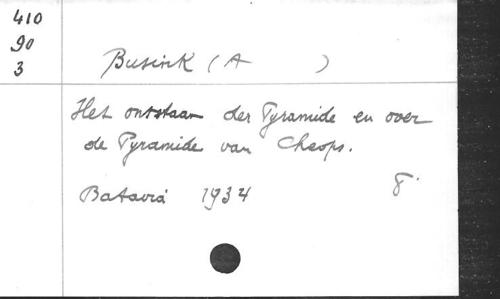 410
90
3
Busink (A )
Het ontstaan der Pyramide en over
de Pyramide van Cheops.
Batavia 1934
8°